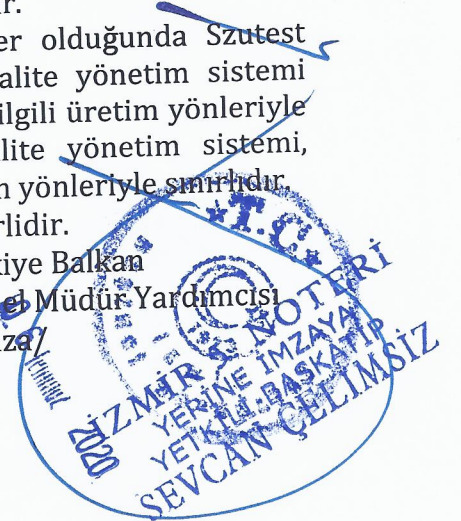 ir.
er olduğunda Szutest
alite yönetim sistemi
ilgili üretim yönleriyle
lite yönetim sistemi,
n yönleriyle sınırlıdır.
rlidir.
kiye Balkan
el Müdür Yardımcısı
za/
★T.C.★
İZMİR NOTERİ
YERİNE İMZAYA
YETKİLİ BAŞKATİP
SEVCAN ÇELİMSİZ
2020